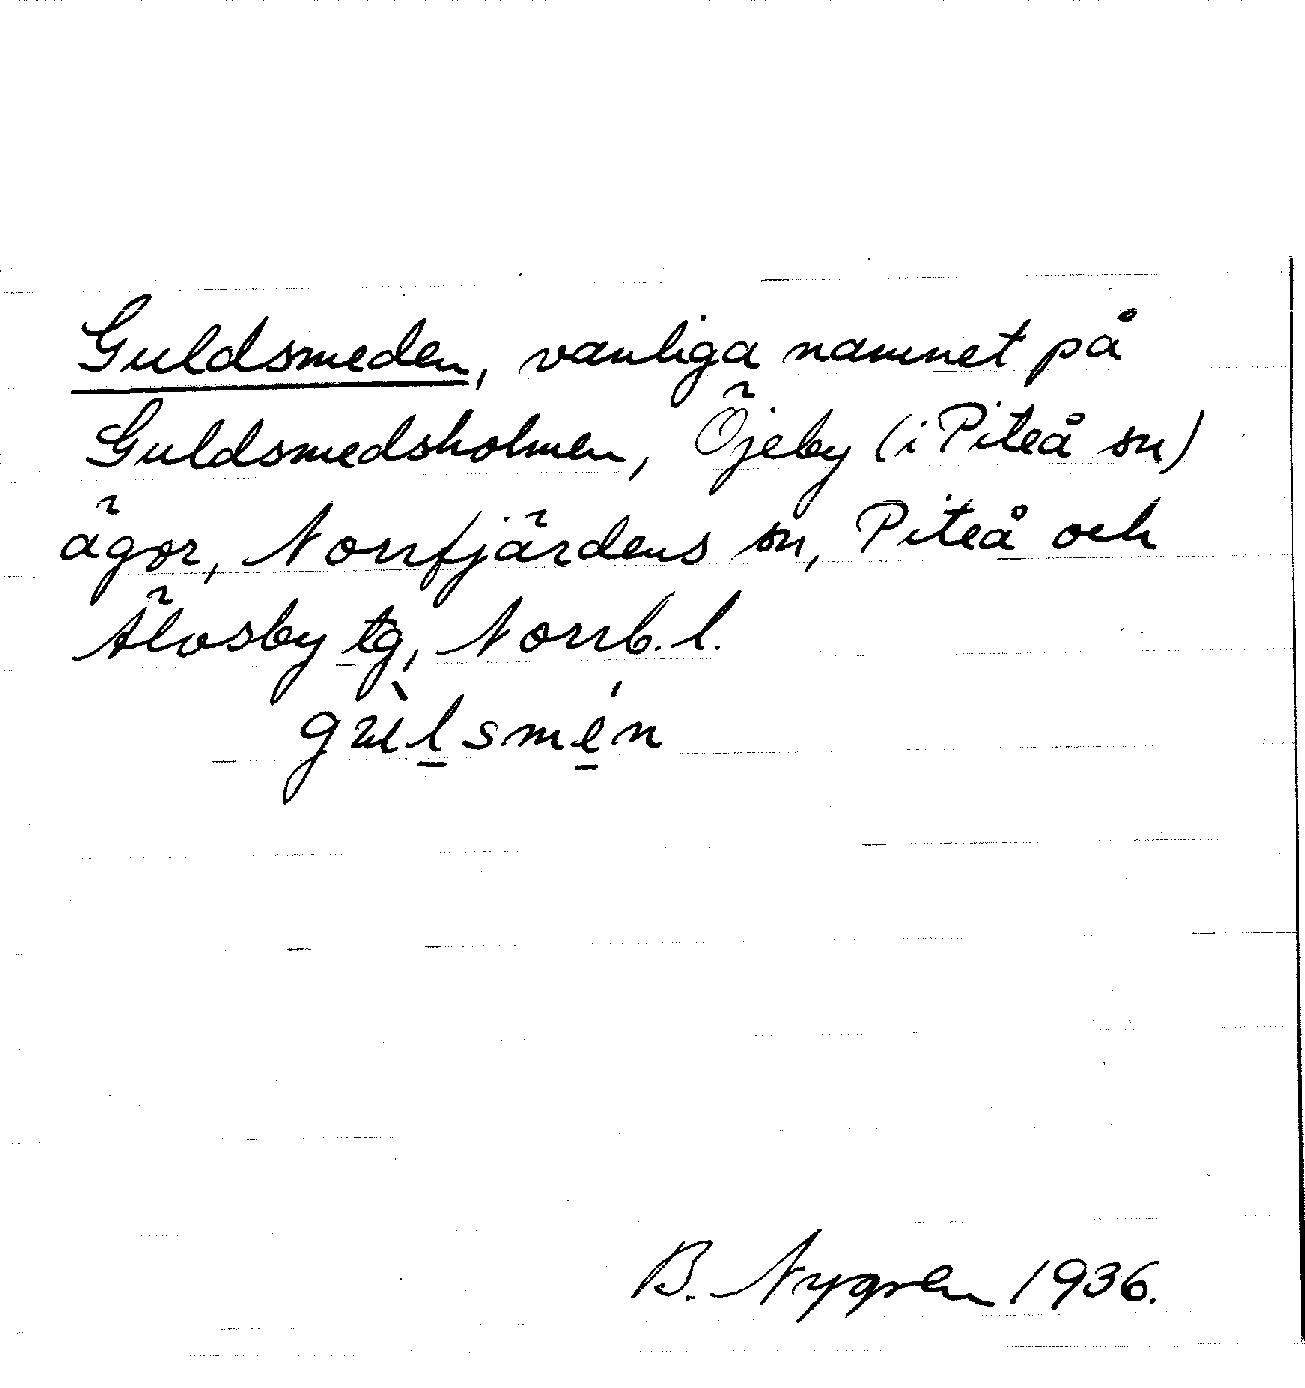 Guldsmeden, vanliga namnet på
Guldsmedsholmen, Öjeby (i Piteå sn)
ägor, Norrfjärdens sn, Piteå och
Älvsby tg, Norrb. l.
gu̇̀l̲smé̲n
B. Nygren 1936.